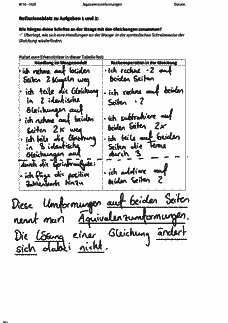 M10 - M2F Äquivalenzumformungen Datum:
Reflexionsblatt zu Aufgaben 1 und 2:
Wie hängen deine Schritte an der Waage mit den Gleichungen zusammen?
Überlege, wie sich eure Handlungen an der Waage in der symbolischen Schreibweise der
Gleichung wiederfinden.
Haltet eure Erkenntnisse in dieser Tabelle fest:
Handlung im Waagemodell
Rechenoperation in der Gleichung
· ich nehme auf beiden
Seiten 2 Kugeln weg
· ich rechne -2 auf
beiden Seiten
· ich teile die Gleichung
in 2 identische
Gleichungen auf
· ich rechne auf beiden
Seiten : 2
· ich nehme auf beiden
Seiten 2x weg
· ich subtrahiere auf
beiden Seiten 2x
· ich teile die Gleichung
in 3 identische
Gleichungen auf
· ich teile auf beiden
Seiten die Terme
durch 3
· ich füge die positive
hinzu
· ich addiere auf
beiden Seiten 2
Diese Umformungen auf beiden Seiten
nennt man Äquivalenzumformungen.
Die Lösung einer Gleichung ändert
sich dabei nicht.